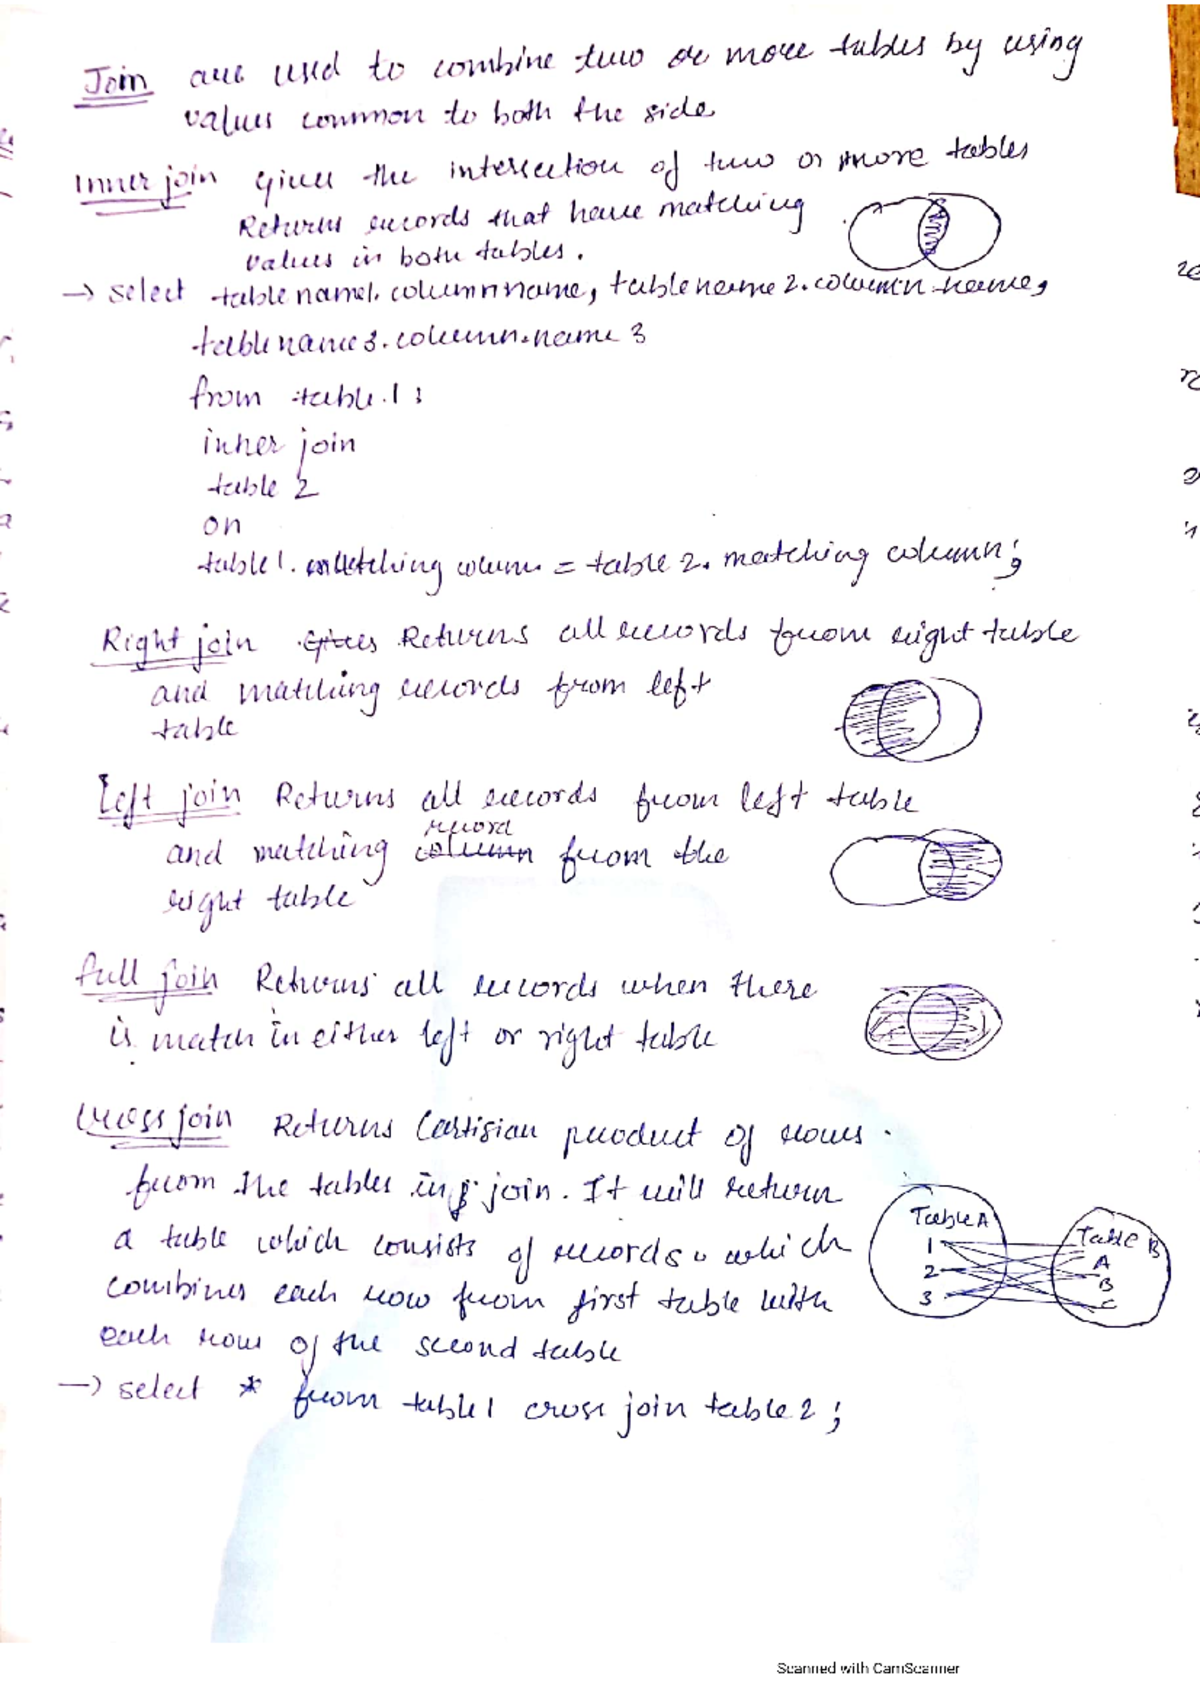 Join are used to combine two or more tables by using
values common to both the side
Inner join gives the intersection of two or more tables
Returns records that have matching
values in both tables.
→ select tablename1.columnname, tablename2.column name,
tablename3.column.name 3
from table.1 ;
inner join
table 2
on
table1. matching column = table 2. matching column;
Right join Gives Returns all records from right table
and matching records from left
table
Left join Returns all records from left table
record
and matching column from the
right table
full join Returns all records when there
is match in either left or right table
Cross join Returns Cartisian product of rows
from the tables in join. It will return
Table A
a table which consists of records which
1
Table B
2
A
combines each row from first table with
B
3
C
each row of the second table
→ select * from table1 cross join table2;
Scanned with CamScanner